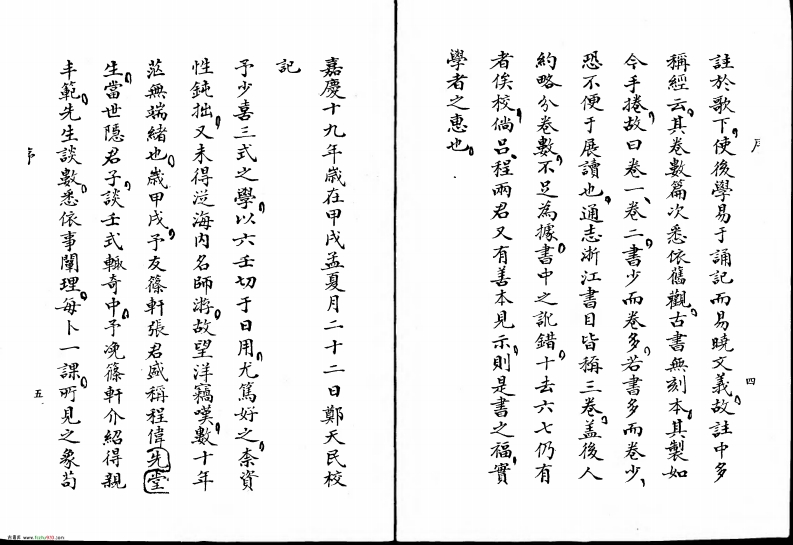 序
四
註於歌下，使後學易于誦記而易曉文義，故註中多
稱經云，其卷數篇次悉依舊觀，古書無刻本，其製如
今手捲，故曰卷一、卷二，書少而卷多，若書多而卷少，
恐不便于展讀也，通志浙江書目皆稱三卷，蓋後人
約略分卷數，不足為據，書中之訛錯，十去六七仍有
者俟校，倘呂、程兩君又有善本見示，則是書之福，實
學者之惠也。
嘉慶十九年歲在甲戌孟夏月二十二日鄭天民校
記
予少喜三式之學，以六壬切于日用，尤篤好之，柰資
性鈍拙，又未得從海內名師游，故望洋竊嘆，數十年
茫無端緒也，歲甲戌，予友篠軒張君盛稱程偉堂先
生，當世隱君子，談壬式輒奇中，予浼篠軒介紹得親
丰範，先生談數，悉依事闡理，每卜一課，所見之象苟
序
五